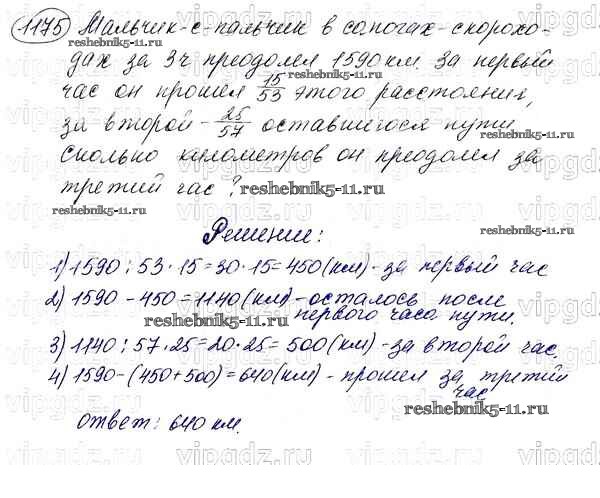 1175 Мальчик-с-пальчик в сапогах-скорохо-
дах за 3ч преодолел 1590 км. За первый
час он прошел 15/53 этого расстояния,
за второй - 25/57 оставшегося пути.
Сколько километров он преодолел за
третий час?
reshebnik5-11.ru
Решение:
1) 1590 : 53 · 15 = 30 · 15 = 450 (км) - за первый час
2) 1590 - 450 = 1140 (км) - осталось после
первого часа пути.
3) 1140 : 57 · 25 = 20 · 25 = 500 (км) - за второй час.
4) 1590 - (450 + 500) = 640 (км) - прошел за третий
час
ответ: 640 км.
reshebnik5-11.ru
vipgdz.ru